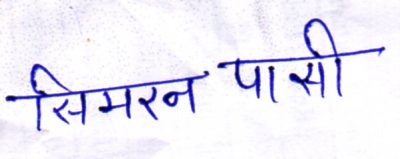 सिमरन पासी